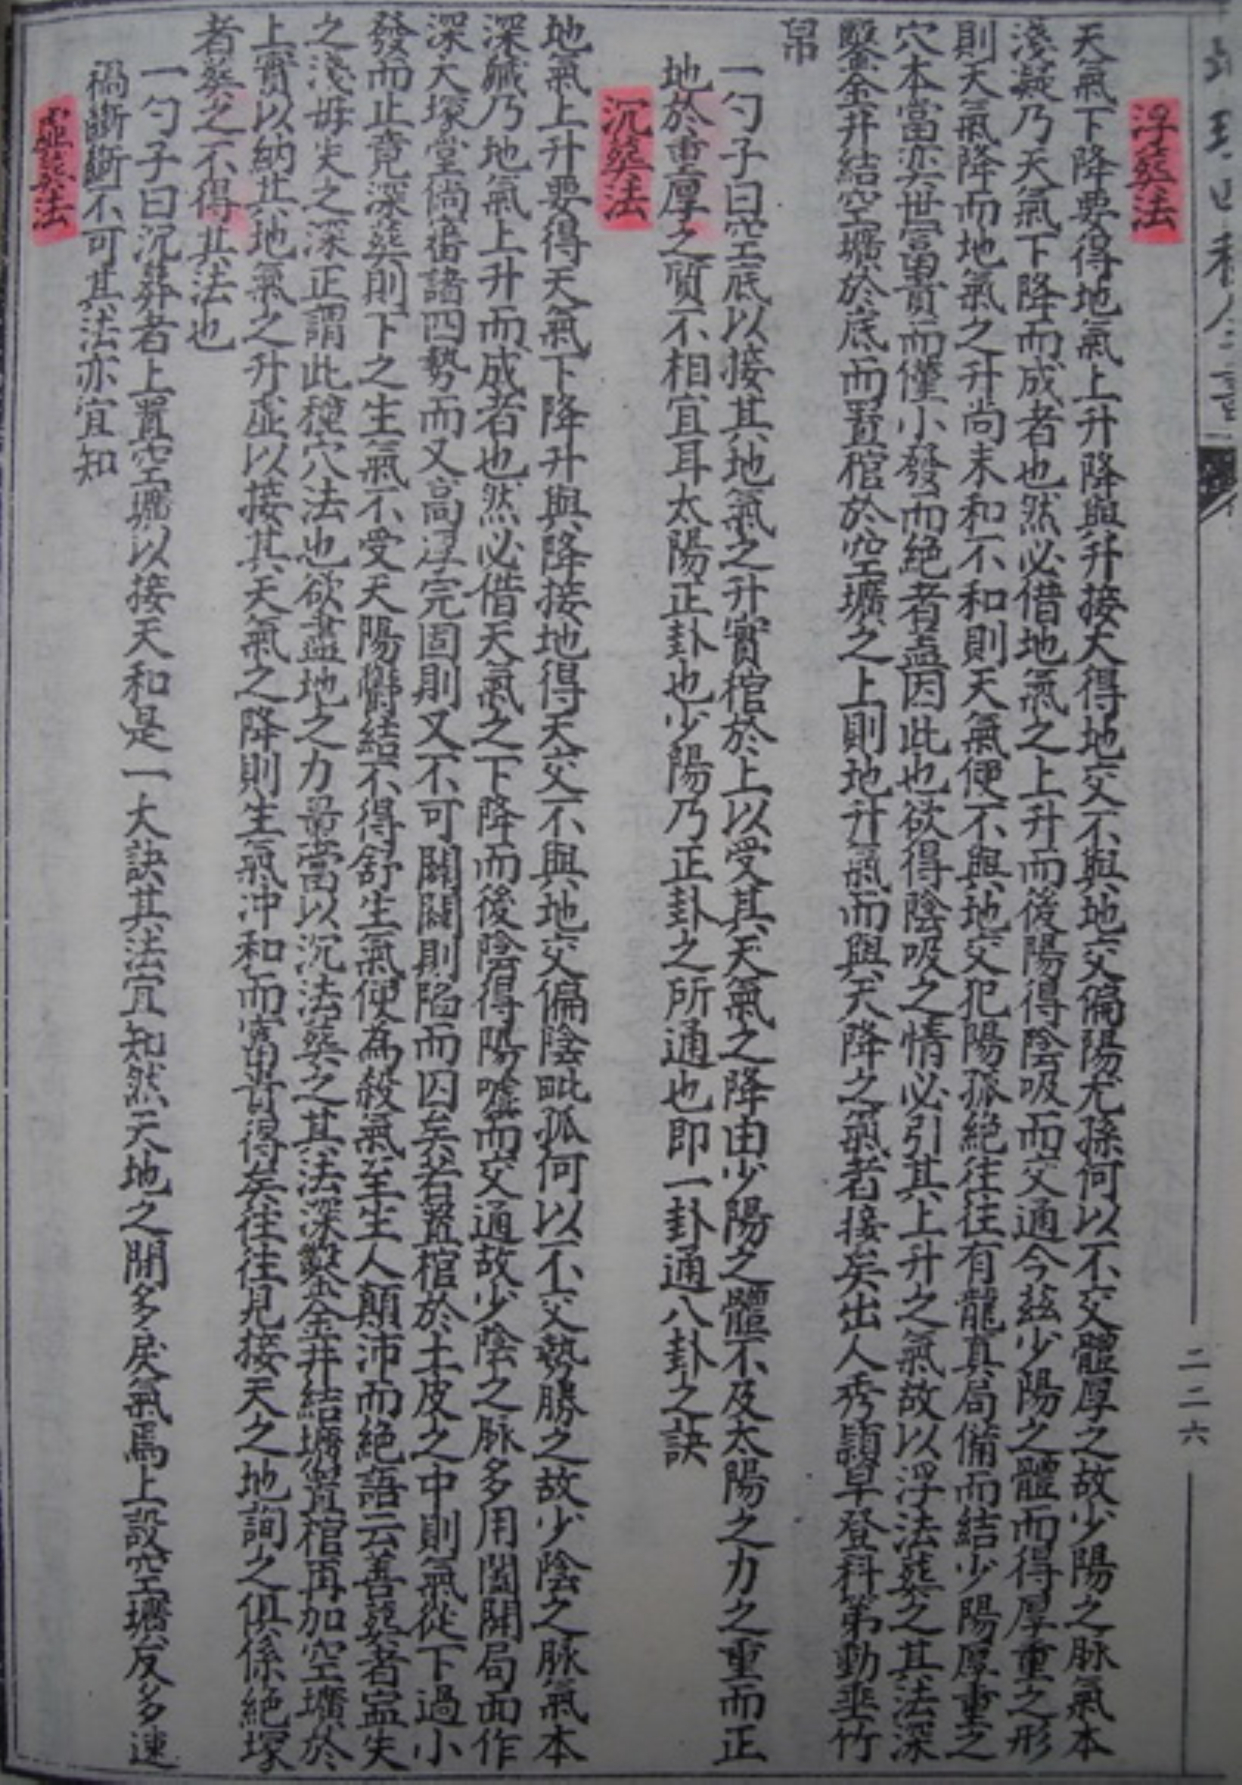 二二六
浮葬法
天氣下降要得地氣上升降與升接天得地交不與地交偏陽尤孫何以不交體厚之故少陽之脉氣本
淺凝乃天氣下降而成者也然必借地氣之上升而後陽得陰吸而交通今茲少陽之體而得厚重之形
則天氣降而地氣之升尚未和不和則天氣便不與地交犯陽孤絶往往有龍真局備而結少陽厚重之
穴本當奕世富貴而僅小發而絕者盖因此也欲得陰吸之情必引其上升之氣故以浮法葬之其法深
鑿金井結空壙於底而置棺於空壙之上則地升氣而與天降之氣者接矣出人秀頴早登科第動垂竹
帛
一勺子曰空底以接其地氣之升實棺於上以受其天氣之降由少陽之體不及太陽之力之重而正
地於重厚之質不相宜耳太陽正卦也少陽乃正卦之所通也即一卦通八卦之訣
沉葬法
地氣上升要得天氣下降升與降接地得天交不與地交偏陰毗孤何以不交勢勝之故少陰之脉氣本
深藏乃地氣上升而成者也然必借天氣之下降而後陰得陽噓而交通故少陰之脉多用闔開局面作
深大塚堂倘審諸四勢而又高浮完固則又不可闢闢則陷而囚矣若置棺於土皮之中則氣從下過小
發而止竟深葬則下之生氣不受天陽欝結不得舒生氣便為殺氣至生人顛沛而絕語云善葬者寍失
之淺毋失之深正謂此種穴法也欲盡地之力量當以沉法葬之其法深鑿金井結壙置棺再加空壙於
上實以納其地氣之升虛以接其天氣之降則生氣冲和而富貴得矣往往見接天之地詢之俱係絕塚
者葬之不得其法也
一勺子曰沉葬者上置空壙以接天和是一大訣其法宜知然天地之開多戾氣焉上設空壙反多速
禍斷斷不可其法亦宜知
葬法